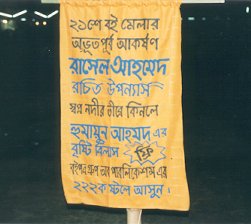 ২১শে বই মেলার
অদ্ভূতপূর্ব আকর্ষণ
রাসেল আহমেদ
রচিত উপন্যাস
স্বপ্ন নদীর তীরে কিনলে
হুমায়ুন আহমদ এর
বৃষ্টি বিলাস ফ্রি
পাবলিকেশন্স এর
২২২ক স্টলে আসুন।